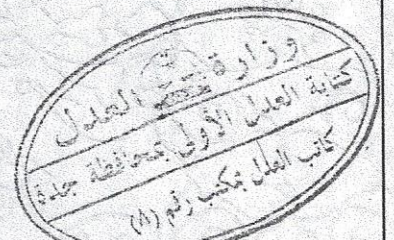 وزارة العدل
كتابة العدل الأولى بمحافظة جدة
كاتب العدل بمكتب رقم (٨)